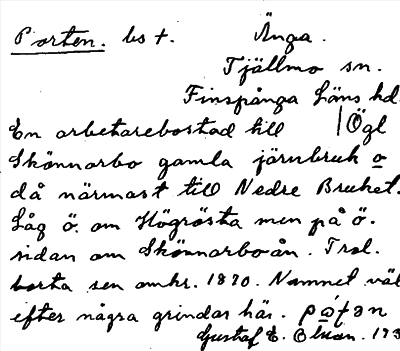 Porten. bst. Änga.
Tjällmo sn.
Finspånga Läns hd.
En arbetarebostad till | Ögl
Skönnarbo gamla järnbruk o
då närmast till Nedre Bruket.
Låg ö. om Högrösta men på ö.
sidan om Skönnarboån. Trol.
borta sen omkr. 1870. Namnet väl
efter några grindar här.
Gustaf E. 193